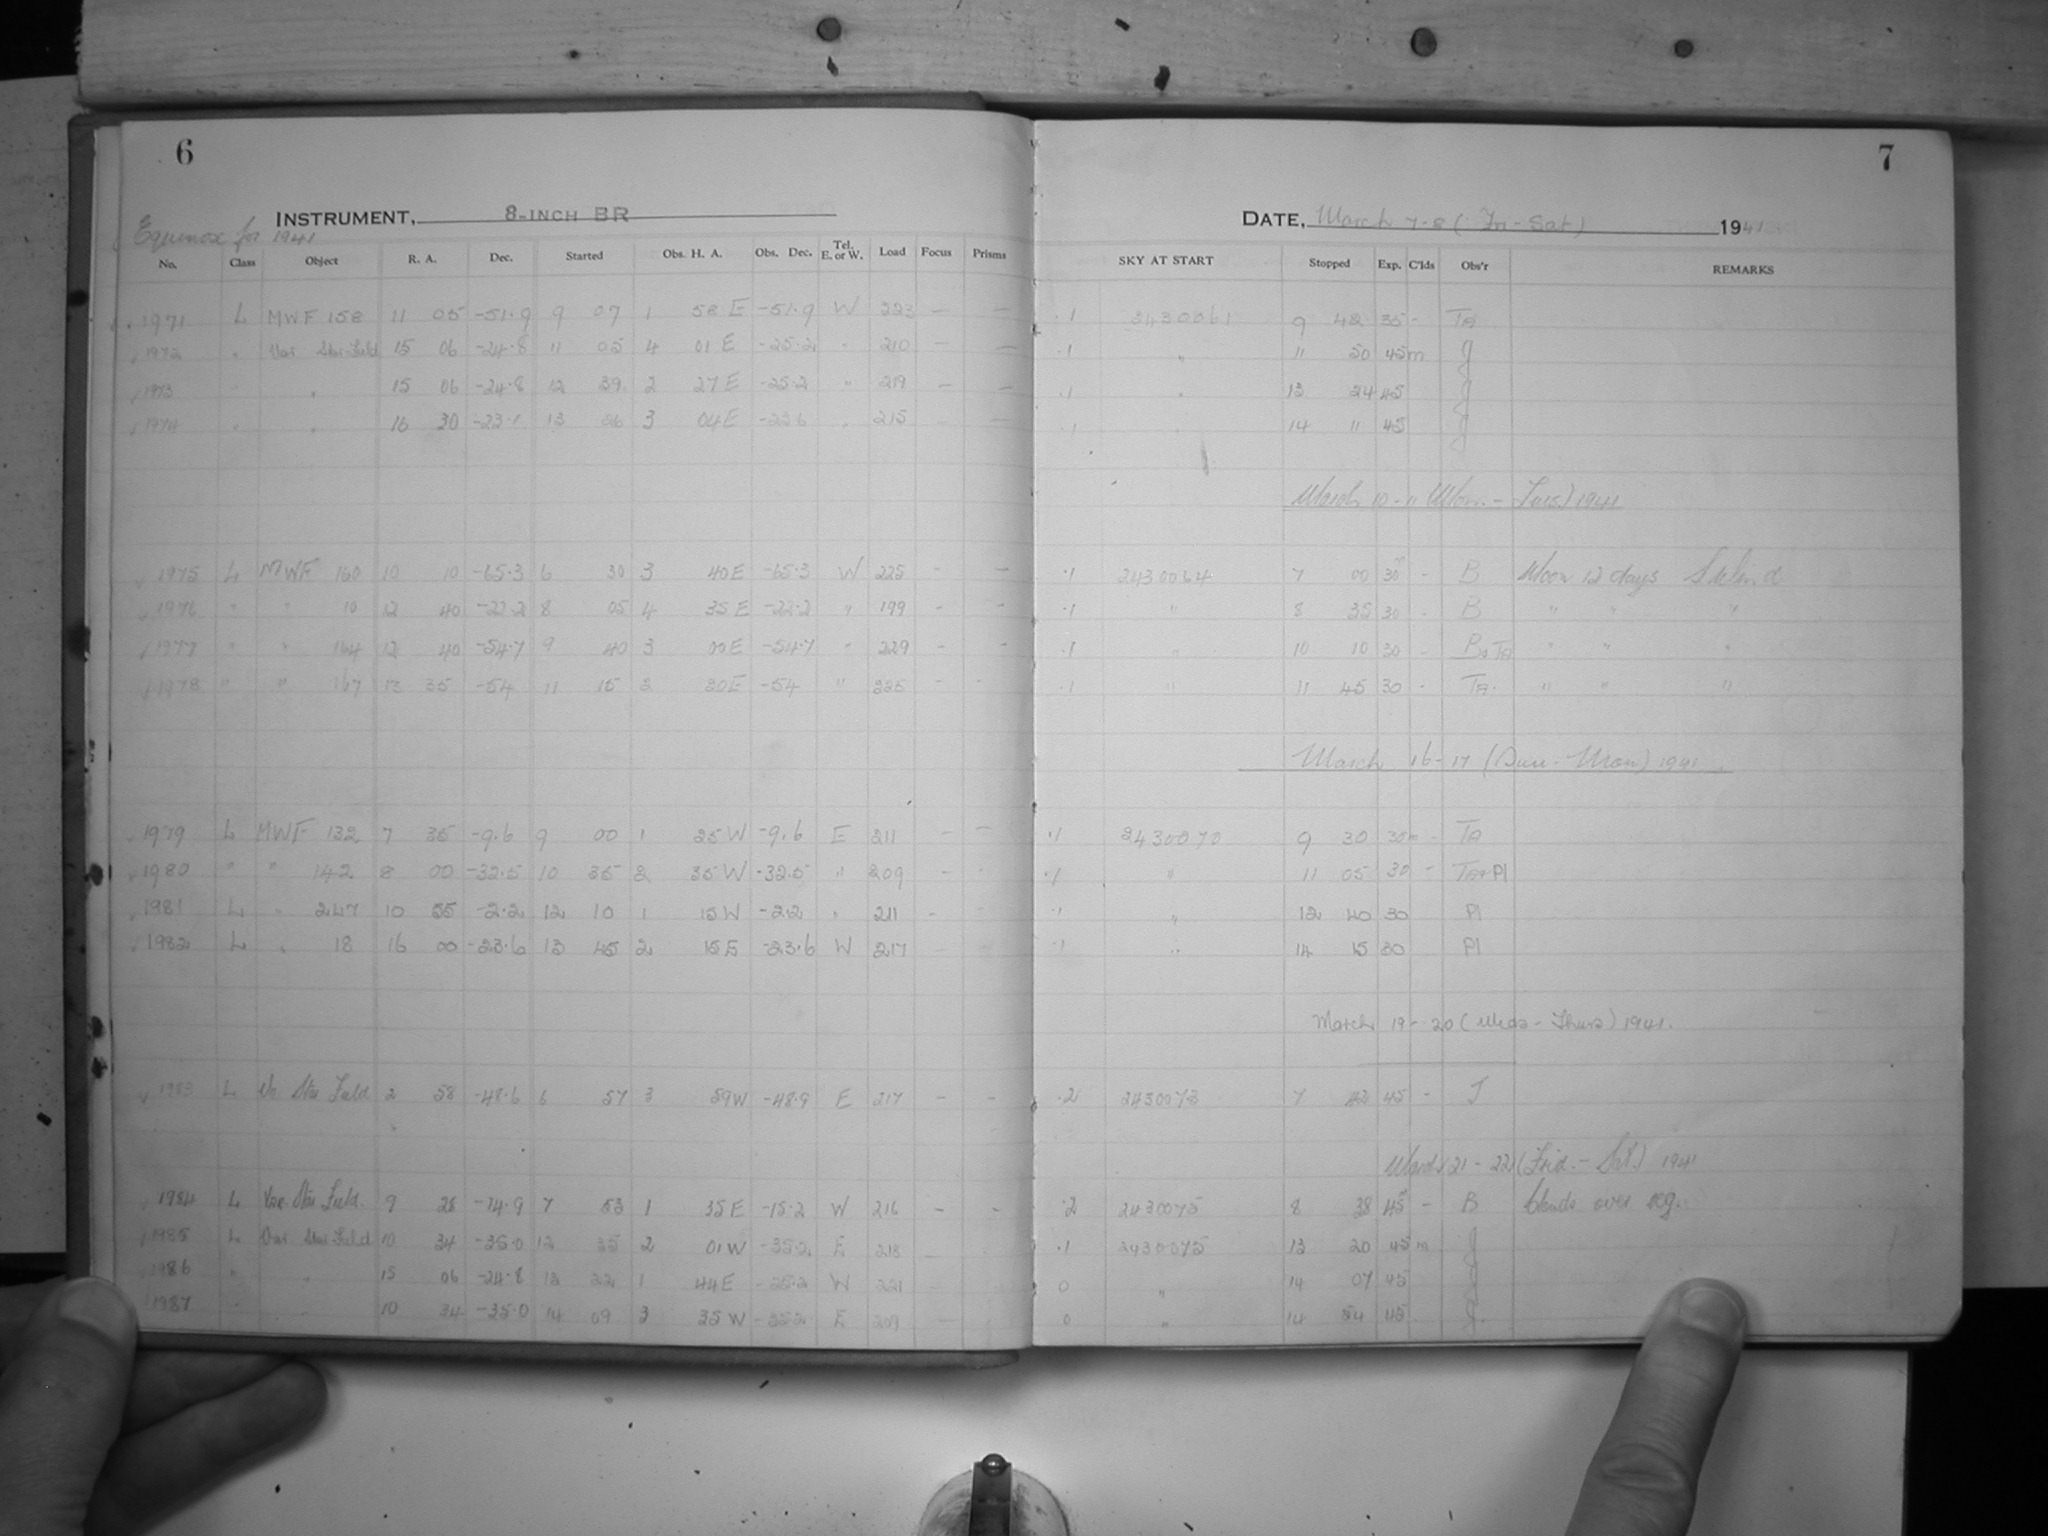 6
7
INSTRUMENT, 8-INCH BR
DATE, March 7-8 (Fri-Sat) 1941
Equinox for 1941
No. Class Object R. A. Dec. Started Obs. H. A. Obs. Dec. Tel. E. or W. Load Focus Prisms SKY AT START Stopped Exp. C'lds Obs'r REMARKS
1971 L MWF 158 11 05 -51.9 9 07 1 58 E -51.9 W 223 - - .1 2430061 9 42 35 - Ta
1972 " Var Star Field 15 06 -24.8 11 05 4 01 E -25.2 " 210 - - .1 " 11 50 45m J
1973 " " 15 06 -24.8 12 39 2 27 E -25.2 " 219 - - .1 " 13 24 45 J
1974 " " 16 30 -23.1 13 26 3 04 E -23.6 " 215 - - .1 " 14 11 45 J
March 10-11 (Mon. - Tues) 1941
1975 L MWF 160 10 10 -65.3 6 30 3 40 E -65.3 W 225 - - .1 2430064 7 00 30 - B Moon 12 days
1976 " " 10 12 40 -22.2 8 05 4 35 E -22.2 " 199 - - .1 " 8 35 30 - B " " "
1977 " " 164 12 40 -54.7 9 40 3 00 E -54.7 " 229 - - .1 " 10 10 30 - B & Ta " " "
1978 " " 167 13 35 -54 11 15 2 20 E -54 " 225 - - .1 " 11 45 30 - Ta. " " "
March 16-17 (Sun - Mon) 1941
1979 L MWF 132 7 35 -9.6 9 00 1 25 W -9.6 E 211 - - .1 2430070 9 30 30m - Ta
1980 " " 142 8 00 -32.5 10 35 2 35 W -32.5 " 209 - - .1 " 11 05 30 - Ta+Pl
1981 L " 247 10 55 -2.2 12 10 1 15 W -2.2 " 211 - - .1 " 12 40 30 Pl
1982 L " 18 16 00 -23.6 13 45 2 15 E -23.6 W 217 - .1 " 14 15 30 Pl
March 19-20 (Weds - Thurs) 1941.
1983 L Var Star Field 2 58 -48.6 6 57 3 59 W -48.9 E 217 - - .2 2430073 7 42 45 - J
March 21-22 (Frid. - Sat) 1941
1984 L Var Star Field. 9 28 -14.9 7 53 1 35 E -15.2 W 216 - - .2 2430075 8 38 45 - B Clouds over reg.
1985 L Var Star Field 10 34 -35.0 12 35 2 01 W -35.2 E 218 - .1 2430075 13 20 45m J
1986 " " 15 06 -24.8 13 22 1 44 E -25.2 W 221 0 " 14 07 45 J
1987 " " 10 34 -35.0 14 09 3 35 W -35.2 E 209 0 " 14 54 45 J